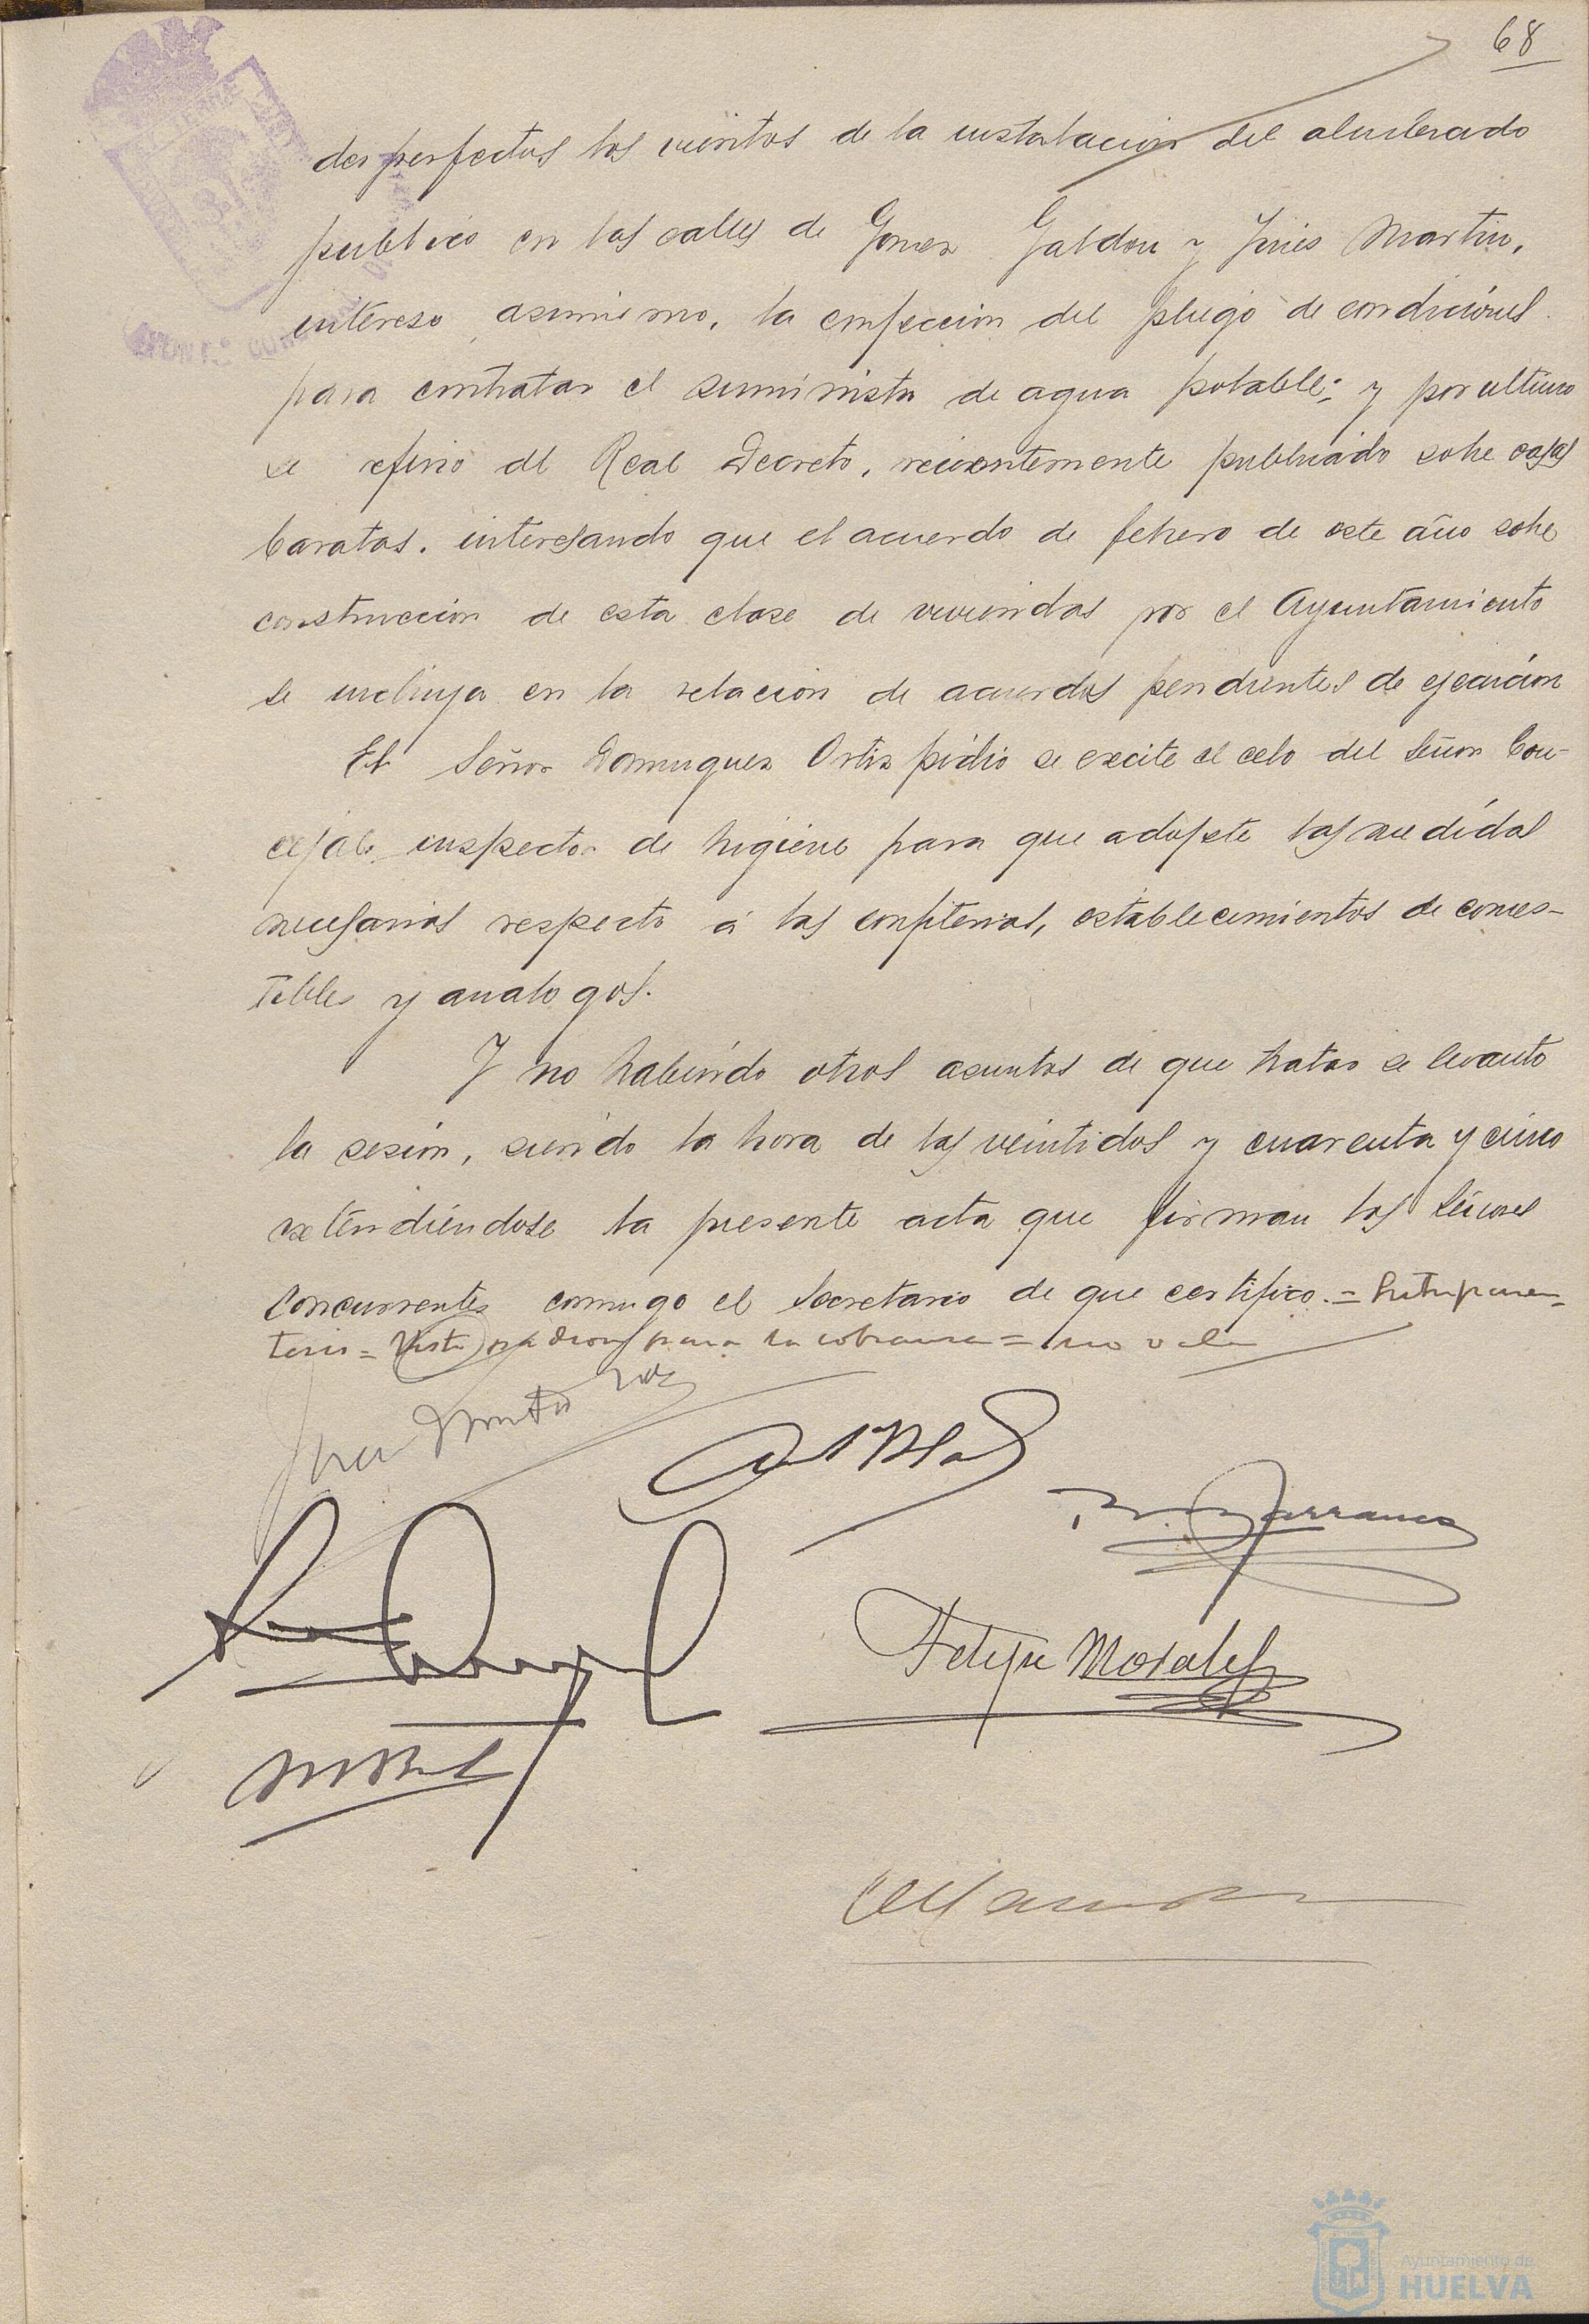 68
desperfectos los vientos de la instalacion del alumbrado
publico en las calles de Gomez Galdon y Gines Martin,
intereso asimismo, la confeccion del pliego de condiciones
para contratar el suministro de agua potable; y por ultimo
se refirio al Real Decreto, recientemente publicado sobre casas
baratas. interesando que el acuerdo de febrero de este año sobre
construccion de esta clase de viviendas por el Ayuntamiento
se incluya en la relacion de acuerdos pendientes de ejecución
El Señor Dominguez Ortiz pidio se excite el celo del Señor Con-
cejal inspector de higiene para que adopte las medidas
necesarias respecto á las confiterias, establecimientos de comes-
tibles y analogos.
Y no habiendo otros asuntos de que tratar se levanto
la sesión, siendo la hora de las veintidos y cuarenta y cinco
extendiéndose la presente acta que firman los Señores
Concurrentes conmigo el Secretario de que certifico.= Entreparen-
tesis = para la cobranza = no vale
Felipe Morales
Ayuntamiento de
HUELVA